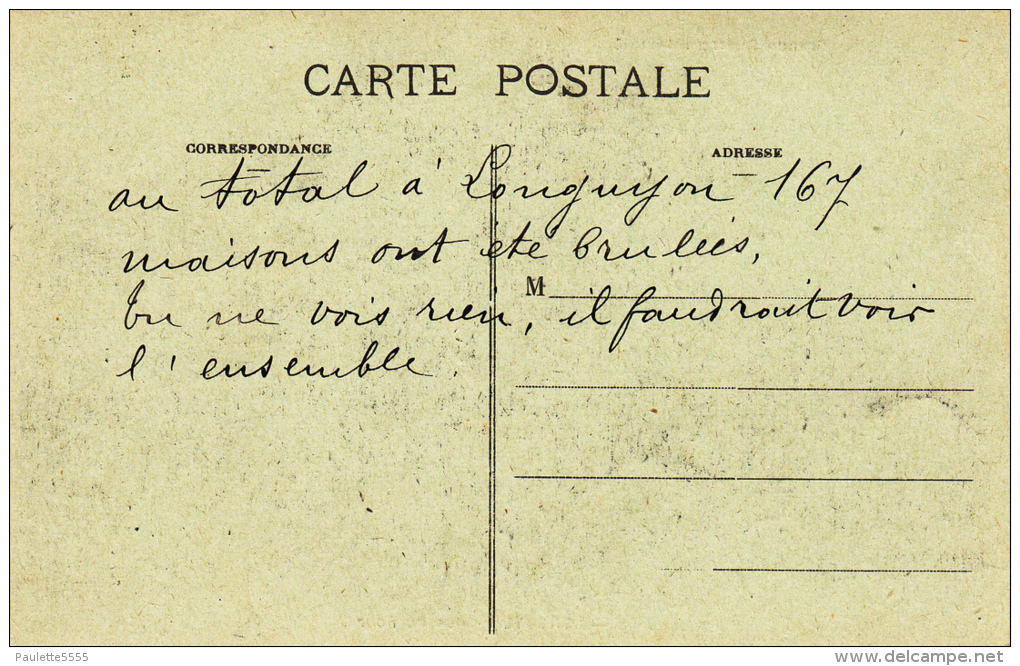 CARTE POSTALE
CORRESPONDANCE
ADRESSE
au total à Longuyon 167
maisons ont été brulées,
M
tu ne vois rien, il faudrait voir
l'ensemble.
Paulette5555
www.delcampe.net